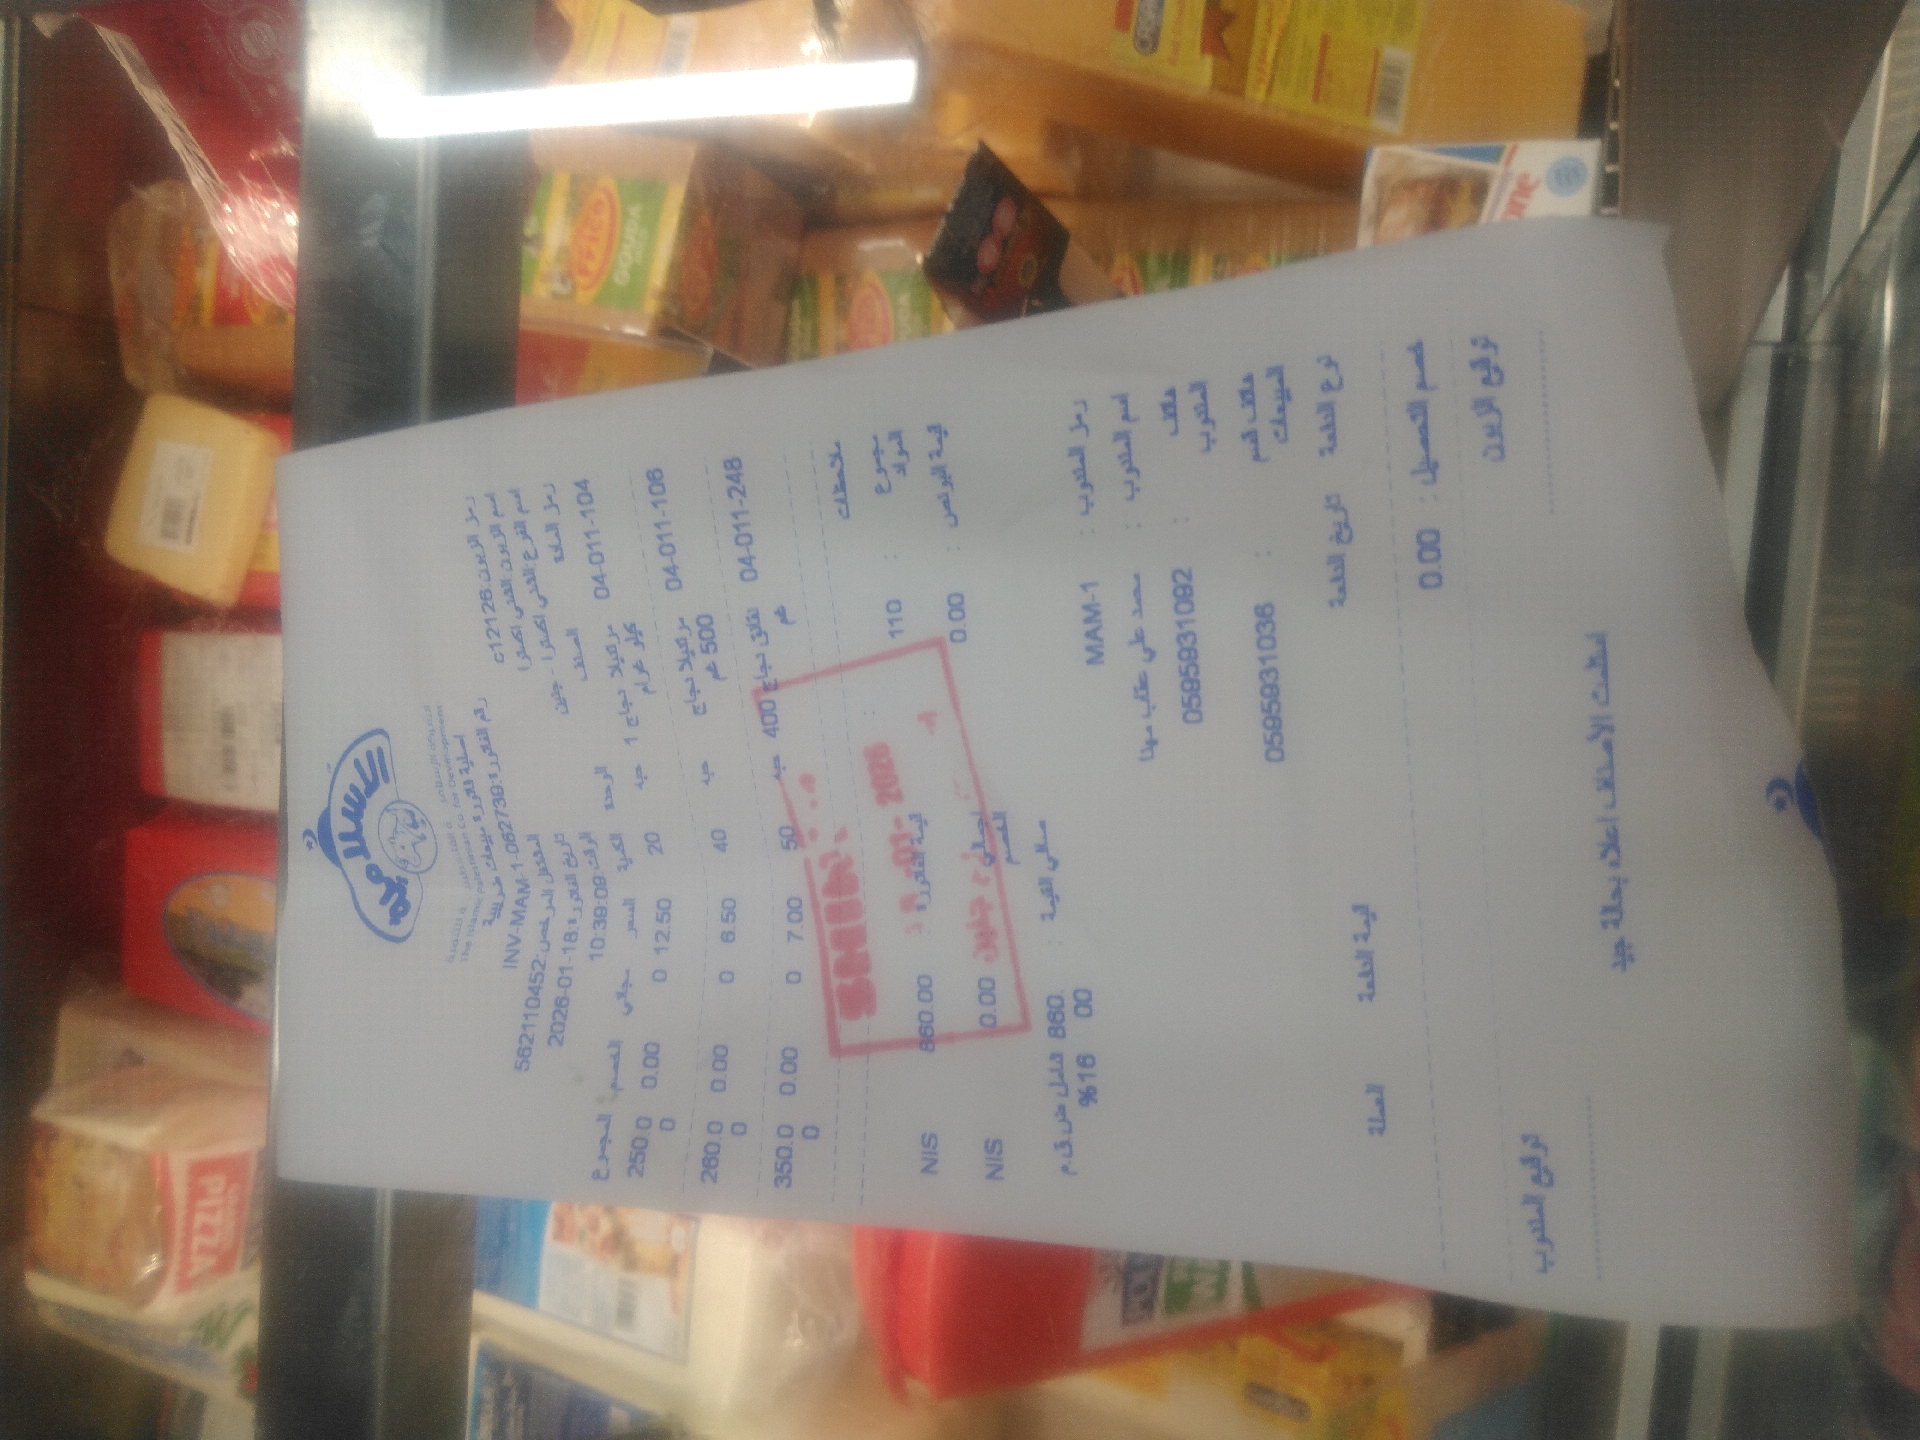 The Islamic Palestinian Co. for Development
إرسالية فاتورة مبيعات ضريبية
رمز الزبون:c12126 رقم الفاتورة:INV-MAM-1-062739
اسم الزبون:الحلبي اكسترا المشتغل المرخص:562110452
اسم الفرع:الحلبي اكسترا - جنين تاريخ الفاتورة:2026-01-18
الوقت:10:39:09
رمز المادة الصنف الوحدة الكمية السعر مجاني الخصم المجموع
04-011-104 مرتديلا دجاج 1 كيلو غرام حبة 20 12.50 0 0.00 250.00
04-011-106 مرتديلا دجاج 500 غم حبة 40 6.50 0 0.00 260.00
04-011-248 نقانق دجاج 400 غم حبة 50 7.00 0 0.00 350.00
ملاحظات
مجموع المواد : 110 قيمة الفاتورة : 860.00 NIS
قيمة البونص : 0.00 إجمالي الخصم : 0.00 NIS
صافي القيمة : 860.00 شامل ض.ق.م %16
رمز المندوب : MAM-1
اسم المندوب : محمد علي عقاب مهنا
هاتف المندوب : 0595931092
هاتف قسم المبيعات : 0595931036
نوع الدفعة تاريخ الدفعة قيمة الدفعة العملة
خصم التحصيل : 0.00
توقيع الزبون توقيع المندوب
استلمت الأصناف اعلاه بحالة جيدة
SHINI
-01-2026
فرع جنين
GOUDA
PIZZA